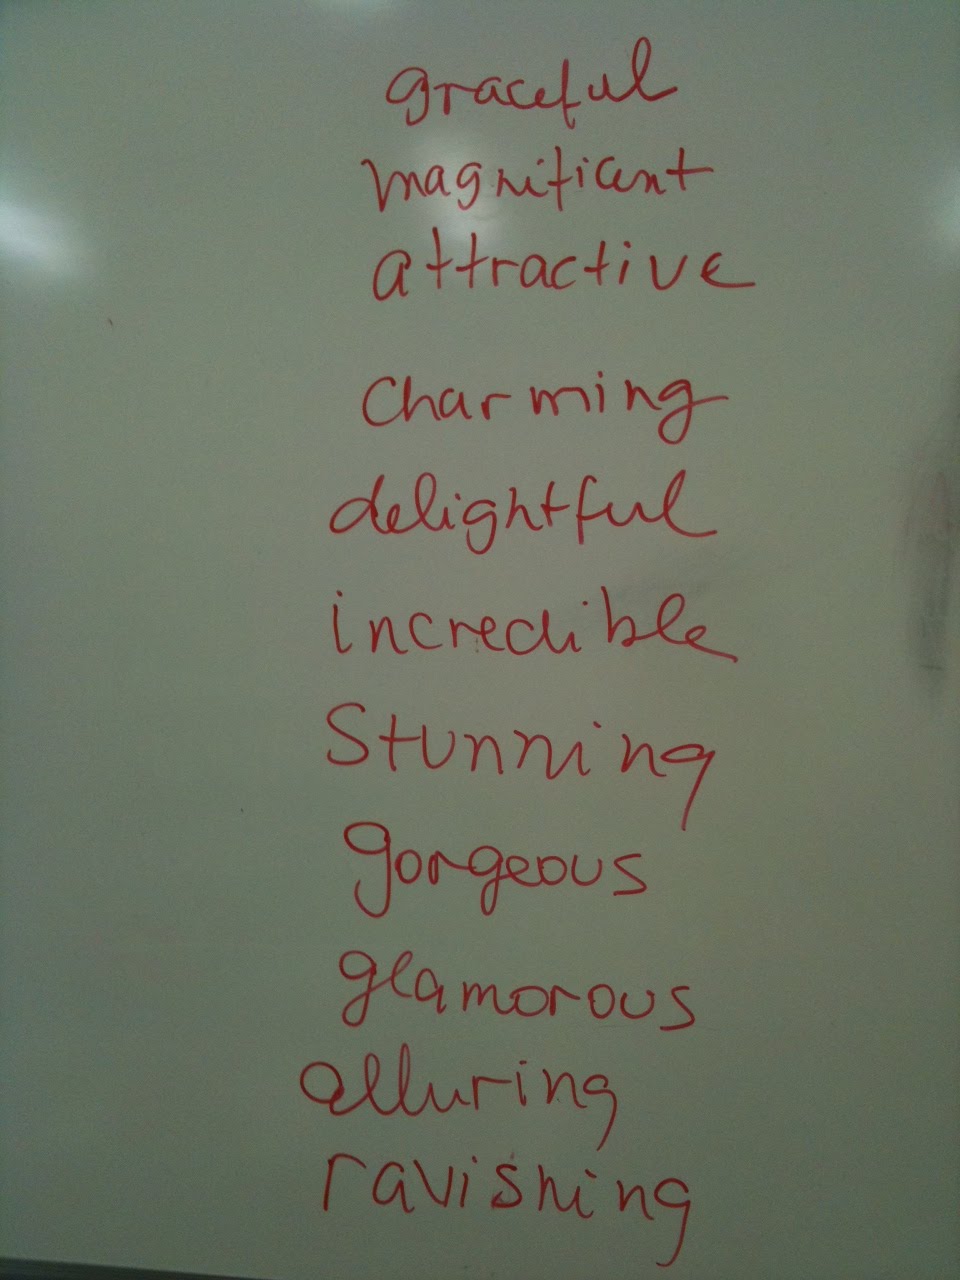 graceful
magnificent
attractive
charming
delightful
incredible
Stunning
gorgeous
glamorous
alluring
ravishing